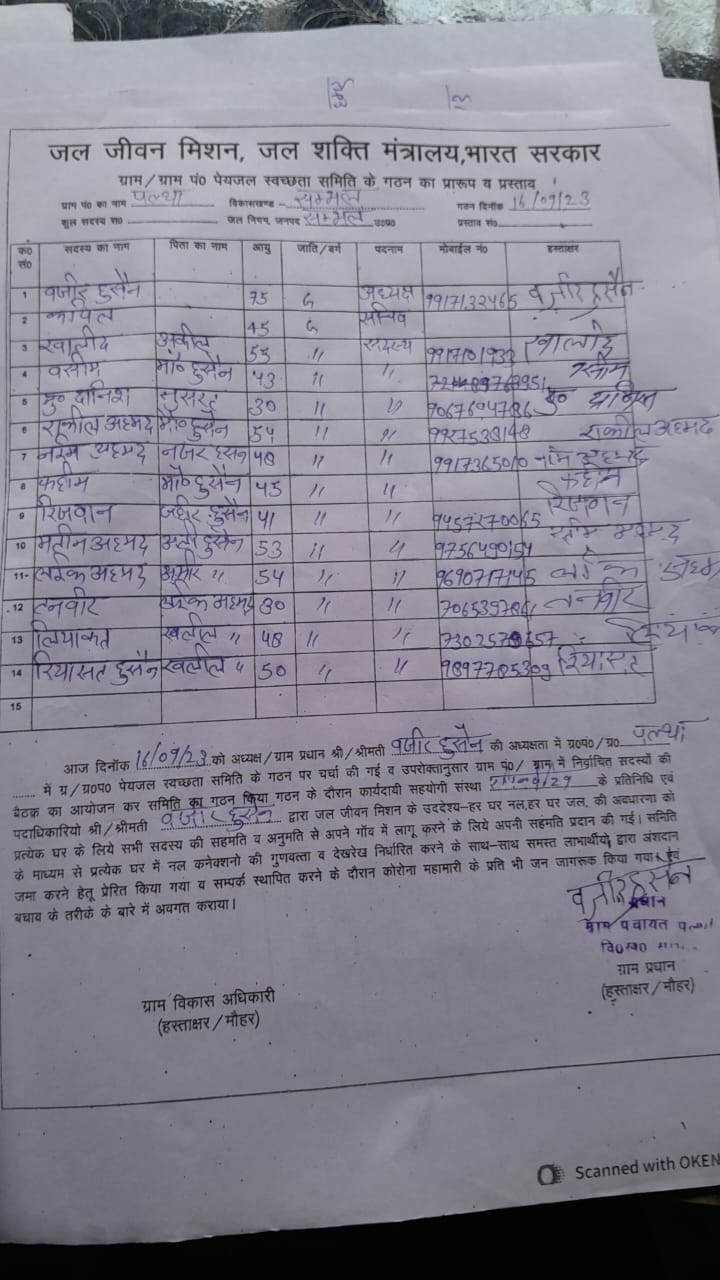 जल जीवन मिशन, जल शक्ति मंत्रालय,भारत सरकार
ग्राम/ग्राम पं० पेयजल स्वच्छता समिति के गठन का प्रारूप व प्रस्ताव
ग्राम पं० का नाम पल्था विकासखण्ड - सम्भल गठन दिनांक 16/09/23
कुल सदस्य स० जल निगम, जनपद सम्भल उ०प्र० प्रस्ताव सं०
क० सं० सदस्य का नाम पिता का नाम आयु जाति/वर्ग पदनाम मोबाईल नं० हस्ताक्षर
1 वजीर हुसैन 75 अध्यक्ष 9917132465 वजीर हुसैन
2 45 सचिव
3 खालीद अकील 53 " सदस्य खालीद
4 वसीम मौ० हुसैन 43 " " वसीम
5 मु० दानिश 30 " " 7067604786 मु० दानिश
6 शकील अहमद मौ० हुसैन 54 " " शकील अहमद
7 नईम अहमद नजर हुसैन 48 " " 9917365010 नईम अहमद
8 फहीम मौ० हुसैन 45 " " फहीम
9 रिजवान जहीर हुसैन 41 " " 9457270065 रिजवान
10 मतीन अहमद अली हुसैन 53 " " 9756490154
11 अमीर " 54 " " 9690717145
12 तनवीर 30 " " तनवीर
13 लियाकत खलील " 48 " " लियाकत
14 रियासत हुसैन खलील " 50 " " 9897785309 रियासत
15
आज दिनाँक 16/09/23 को अध्यक्ष/ग्राम प्रधान श्री/श्रीमती वजीर हुसैन की अध्यक्षता में ग्र०पं०/ग्र० पल्था
में ग्र/ग्र०प० पेयजल स्वच्छता समिति के गठन पर चर्चा की गई व उपरोक्तानुसार ग्राम पं०/ ग्राम में निर्वाचित सदस्यों की
बैठक का आयोजन कर समिति का गठन किया गठन के दौरान कार्यदायी सहयोगी संस्था के प्रतिनिधि एवं
पदाधिकारियो श्री/श्रीमती वजीर हुसैन द्वारा जल जीवन मिशन के उददेश्य-हर घर नल,हर घर जल, की अवधारणा को
प्रत्येक घर के लिये सभी सदस्य की सहमति व अनुमति से अपने गाँव में लागू करने के लिये अपनी सहमति प्रदान की गई। समिति
के माध्यम से प्रत्येक घर में नल कनेक्शनो की गुणवत्ता व देखरेख निर्धारित करने के साथ-साथ समस्त लाभार्थीयो द्वारा अंशदान
जमा करने हेतू प्रेरित किया गया व सम्पर्क स्थापित करने के दौरान कोरोना महामारी के प्रति भी जन जागरूक किया गया। एवं
बचाव के तरीके के बारे में अवगत कराया।
वजीर हुसैन
प्रधान
ग्राम पंचायत पल्था
वि०ख०
ग्राम प्रधान
(हस्ताक्षर/मौहर)
ग्राम विकास अधिकारी
(हस्ताक्षर/मौहर)
Scanned with OKEN